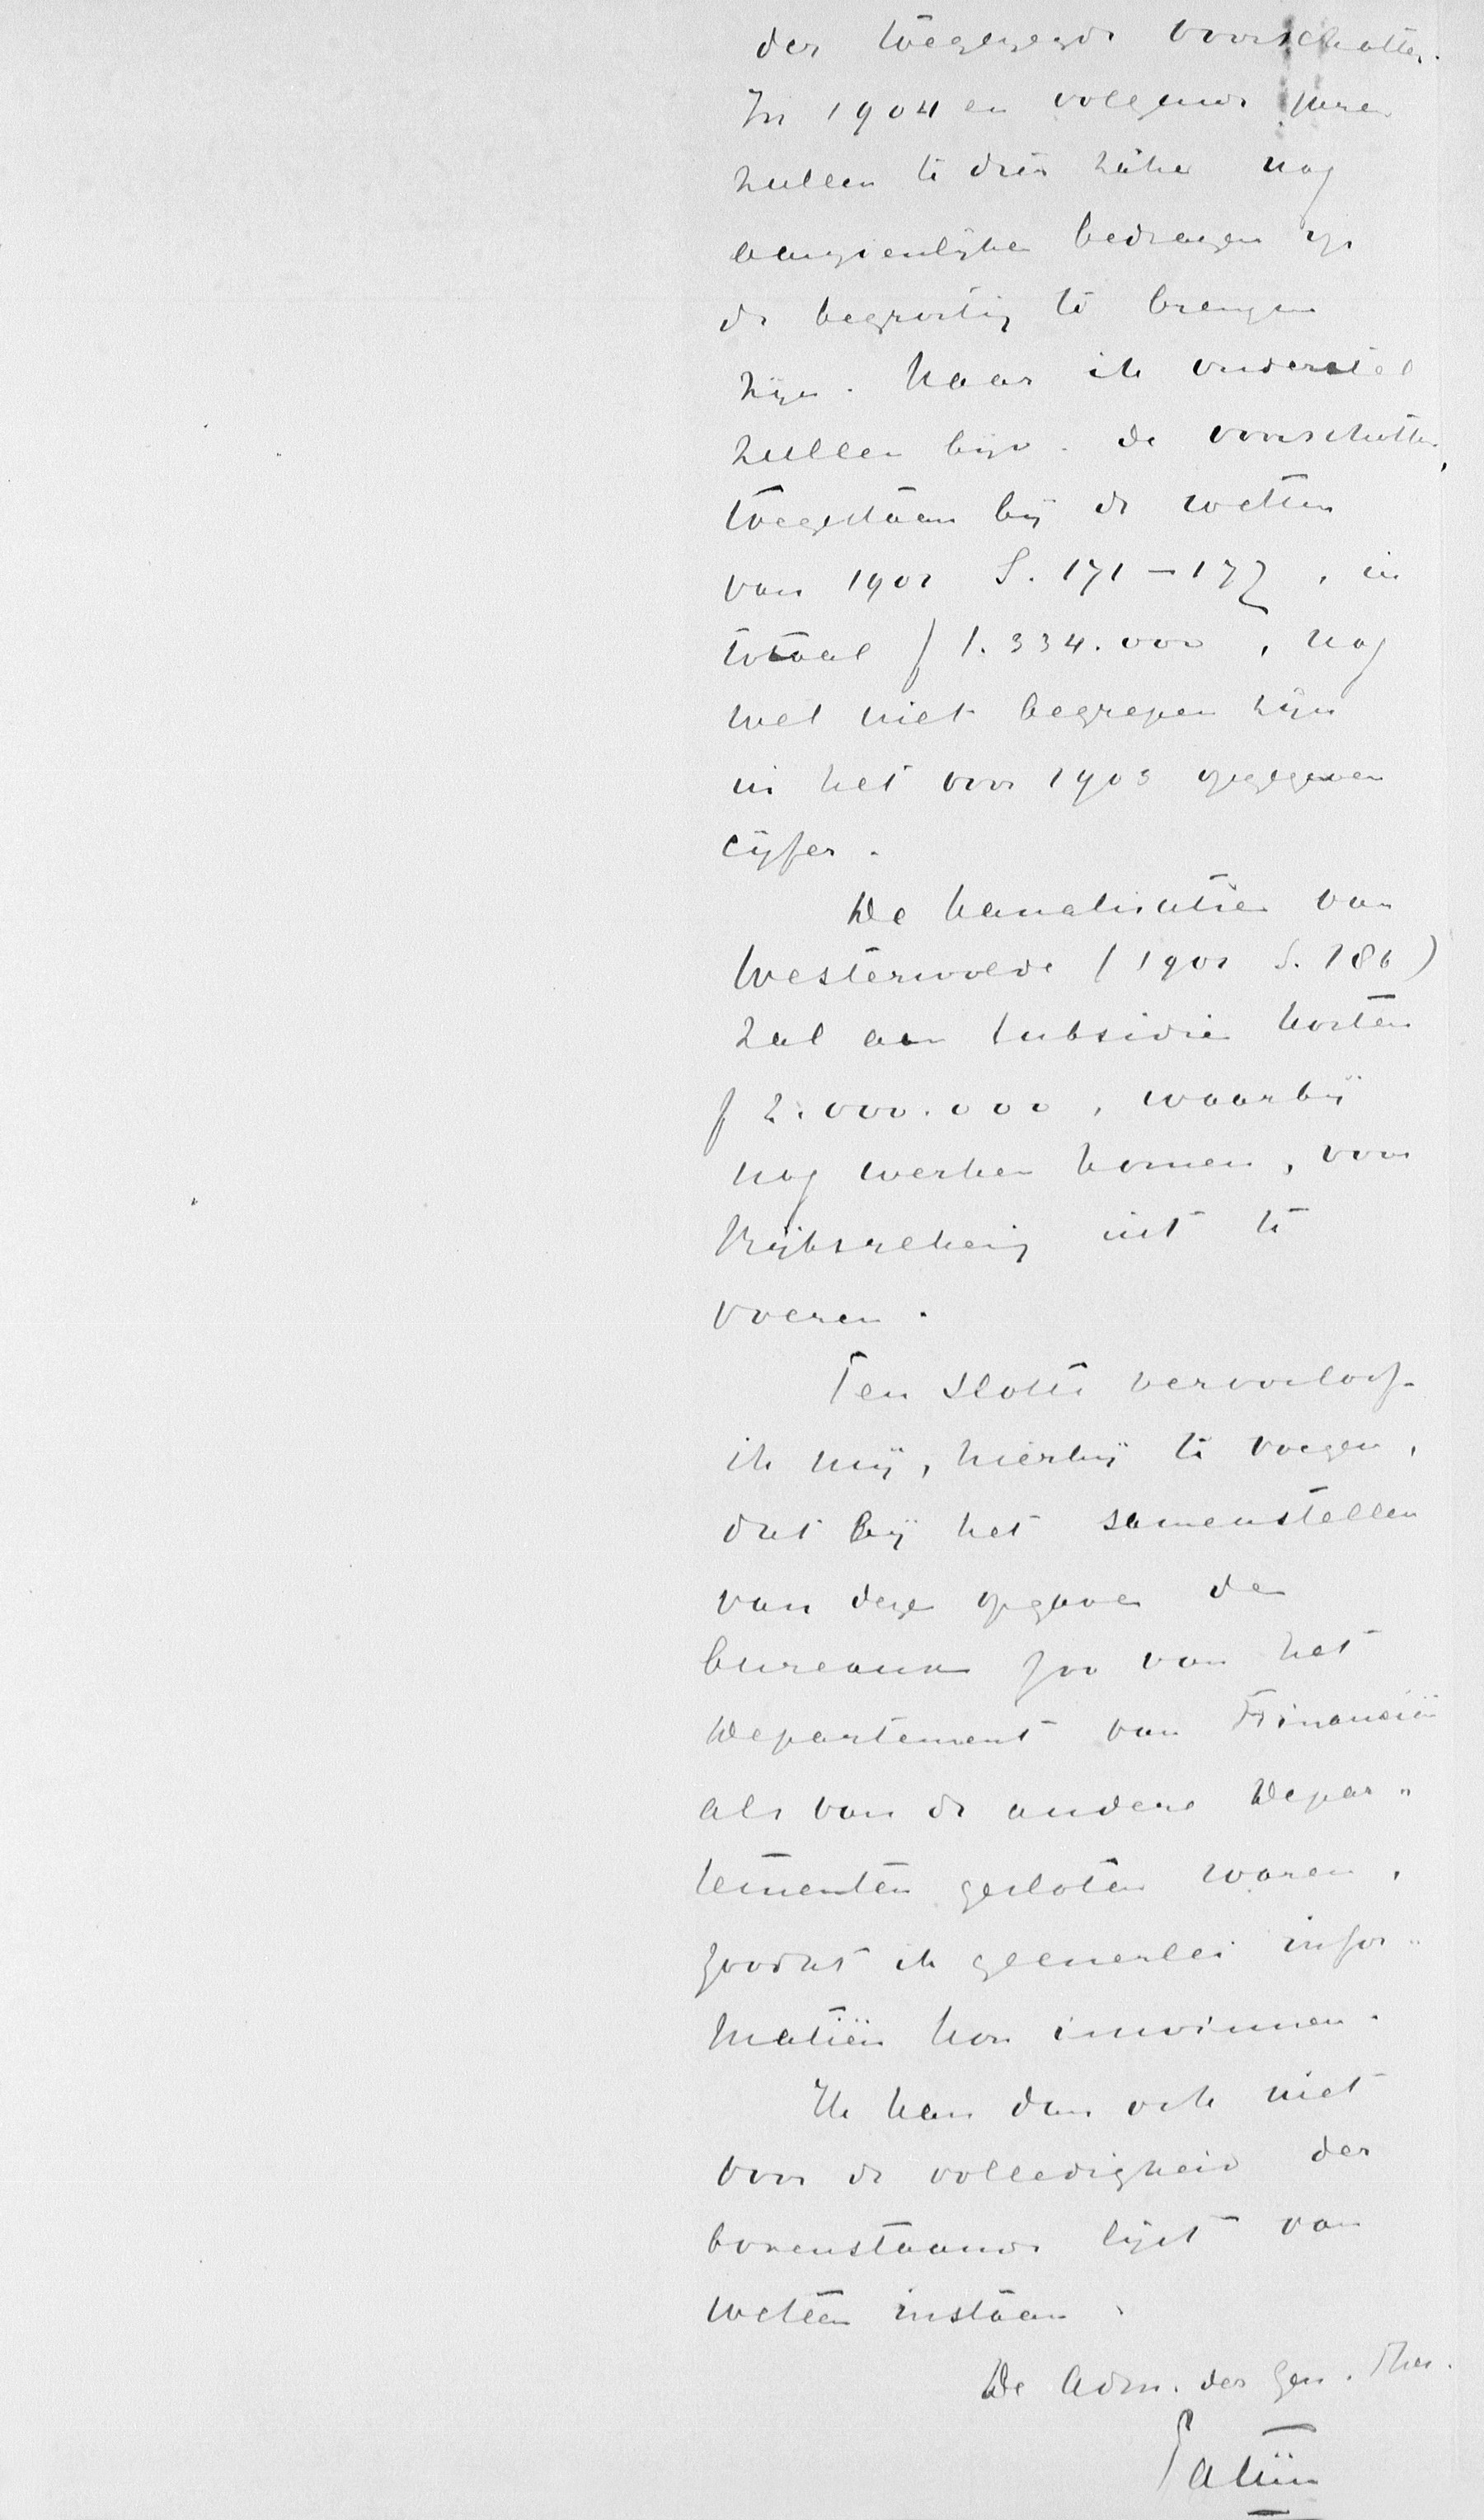 der toegezegde voorschotten.
In 1904 en volgende jaren
zullen te dier zake nog
aanzienlijke bedragen op
de begrooting te brengen
zijn. Naar ik onderstel
zullen bijv. de voorschotten,
toegestaan bij de wetten
van 1902 S. 171–177, in
totaal f 1.334.000, nog
wel niet begrepen zijn
in het voor 1903 opgegeven
cijfer.
De kanalisatie van
Westerwolde (1902 S. 186)
zal aan subsidie kosten
f 2.000.000, waarbij
nog werken komen, voor
Rijksrekening uit te
voeren.
Ten slotte veroorloof
ik mij, hierbij te voegen,
dat bij het samenstellen
van deze opgave de
bureaux zoo van het
Departement van Financiën
als van de andere Depar"
tementen gesloten waren,
zoodat ik geenerlei infor"
matiën kon inwinnen.
Ik kan dan ook niet
voor de volledigheid der
bovenstaande lijst van
wetten instaan.
De Adm. der Gen. Thes.
Patijn